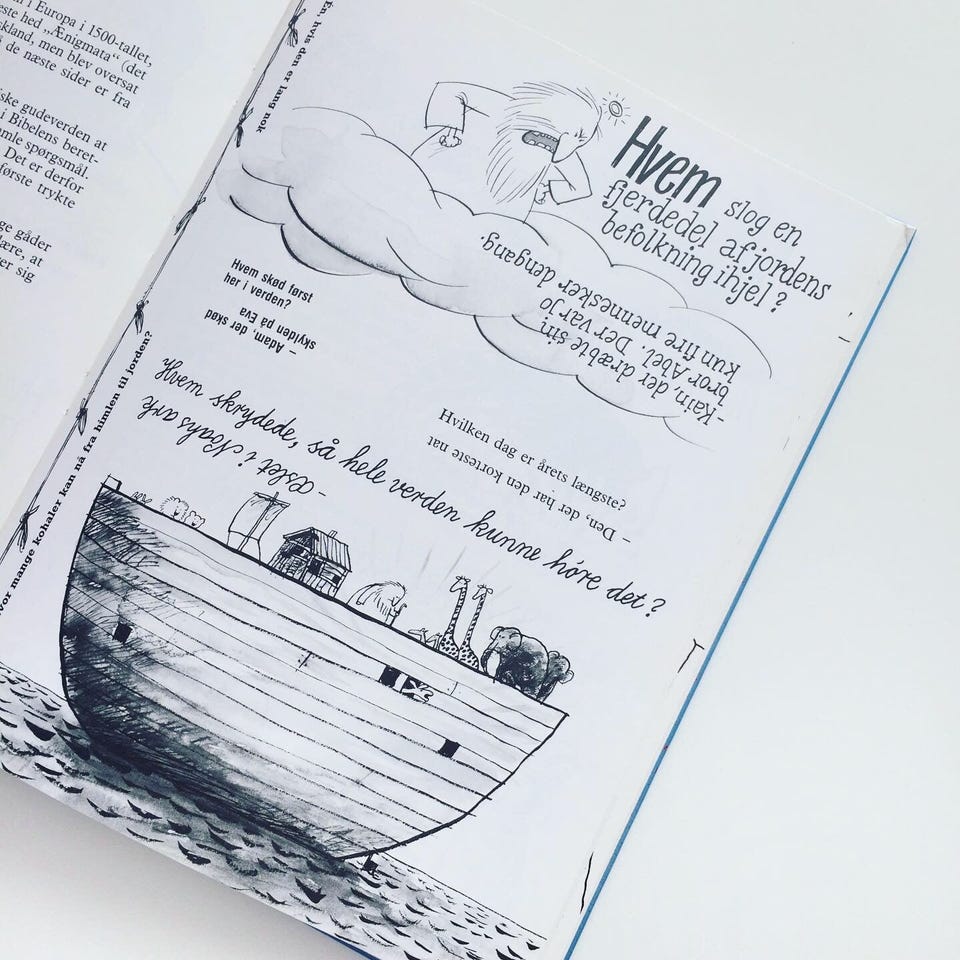 i Europa i 1500-tallet,
ste hed „Ænigmata“ (det
skland, men blev oversat
de næste sider er fra
ske gudeverden at
i Bibelens beret-
mle spørgsmål.
Det er derfor
første trykte
ge gåder
lære, at
er sig
Én, hvis den er lang nok
vor mange kohaler kan nå fra himlen til jorden?
Hvem slog en
fjerdedel af jordens
befolkning ihjel?
–Kain, der dræbte sin
bror Abel. Der var jo
kun fire mennesker dengang.
Hvem skød først
her i verden?
– Adam, der skød
skylden på Eva
Hvilken dag er årets længste?
– Den, der har den korteste nat
Hvem skrydede, så hele verden kunne høre det?
– Æslet i Noahs ark